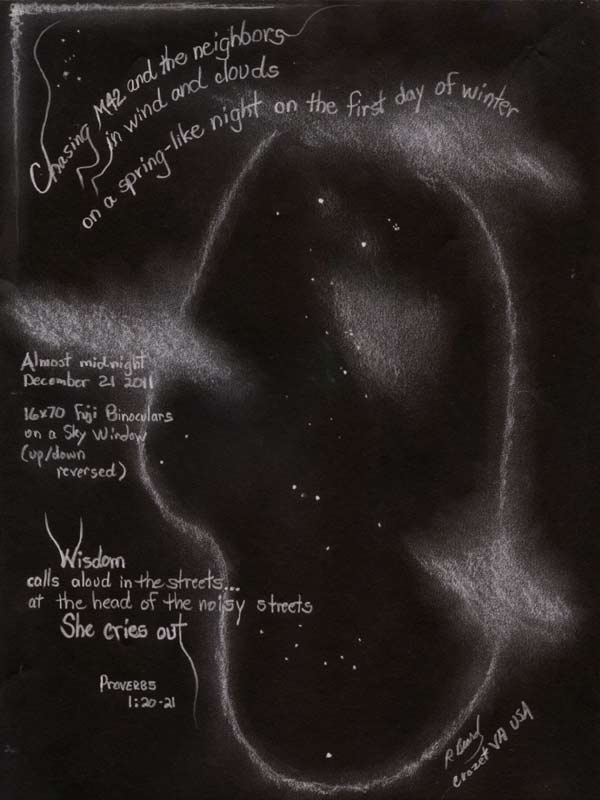 Chasing M42 and the neighbors
in wind and clouds
on a spring-like night on the first day of winter
Almost midnight
December 21 2011
16x70 Fuji Binoculars
on a Sky Window
(up/down
reversed)
Wisdom
calls aloud in the streets...
at the head of the noisy streets
She cries out
PROVERBS
1:20-21
Crozet VA USA